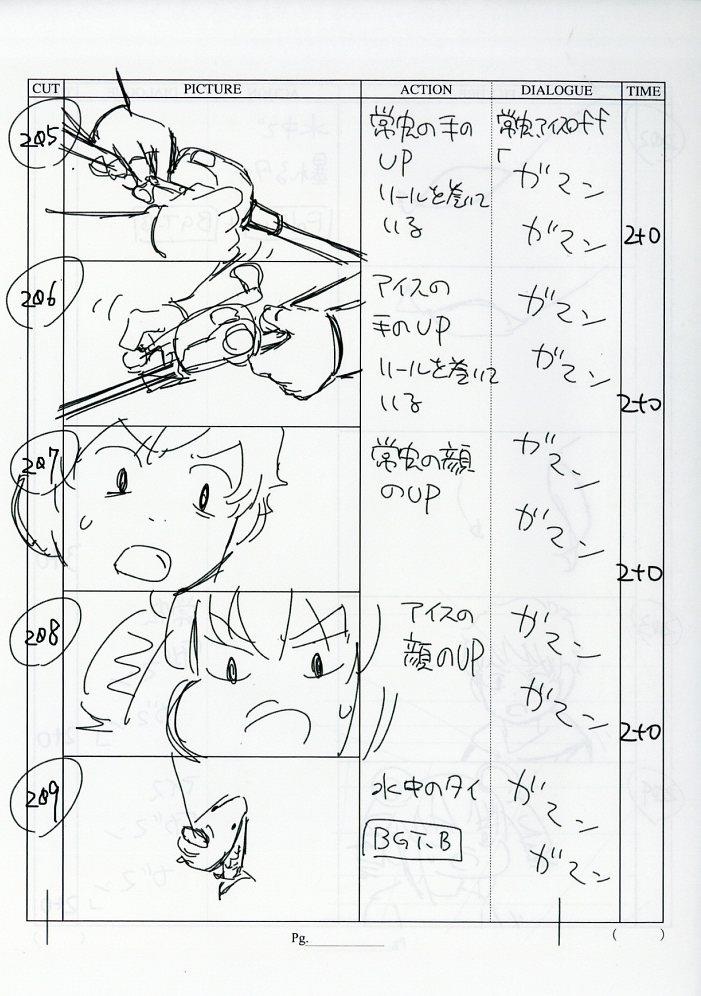 CUT PICTURE ACTION DIALOGUE TIME
205
常虫の手の
UP
リールを巻いて
いる
常虫アイスOff
「
ガマン
ガマン
2+0
206
アイスの
手のUP
リールを巻いて
いる
ガマン
ガマン
2+0
207
常虫の顔
のUP
ガマン
ガマン
2+0
208
アイスの
顔のUP
ガマン
ガマン
2+0
209
水中のタイ
ガマン
ガマン
Pg.
( )